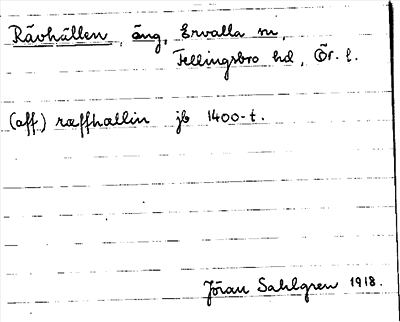 Rävhällen, äng, Ervalla sn,
Fellingsbro hd, Ör. l.
(aff) ræffhallin jb 1400-t.
Jöran Sahlgren 1918.